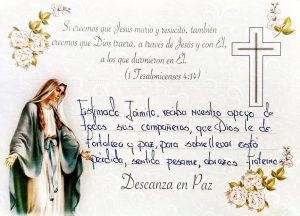 Si creemos que Jesus murio y resucitó, también
creemos que Dios traera, a traves de Jesús y con Él,
a los que durmieron en Él.
(1 Tesalonicenses 4:14)
Estimado Jaimito, reciba nuestro apoyo de
todos sus compañeros, que Dios le de
fortaleza y paz, para sobrellevar esta
pérdida, sentido pesame, abrazos fraterno
Descanza en Paz